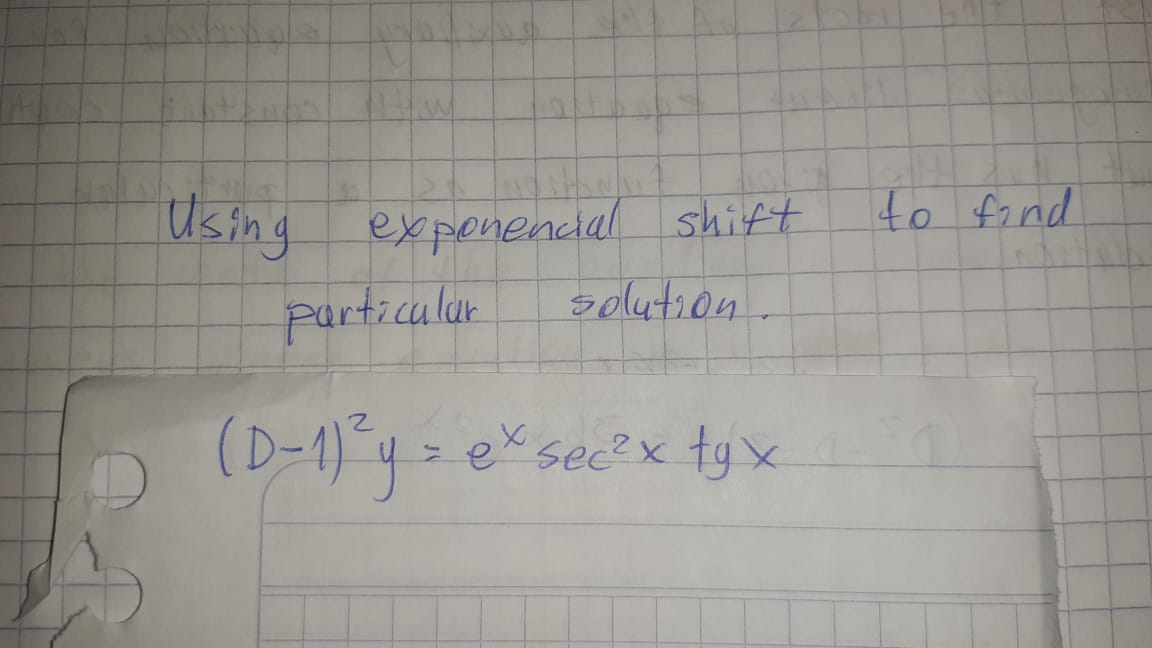 Using exponencial shift to find
particular solution.
(D-1)²y = eˣ sec²x tgx